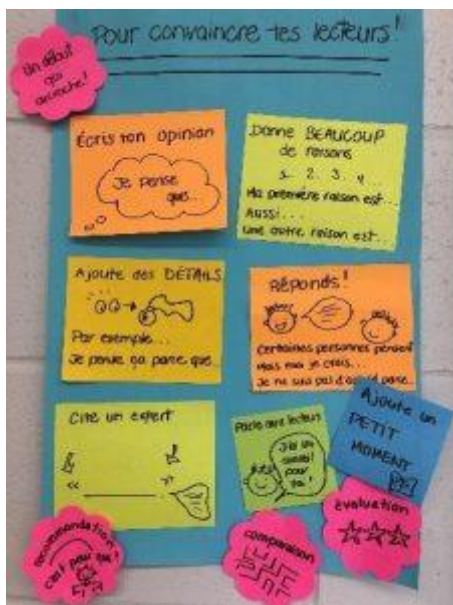 Pour convaincre tes lecteurs!
Un début
qui
accroche!
Écris ton opinion
Je pense
que...
Donne BEAUCOUP
de raisons
1. 2. 3. 4
Ma première raison est...
Aussi...
Une autre raison est...
Ajoute des DÉTAILS
Par exemple...
Je pense ça parce que...
Réponds!
Certaines personnes pensent
Mais moi je crois...
Je ne suis pas d'accord parce...
Cite un expert
" "
Parle aux lecteurs
J'ai un
conseil
pour
toi!
Ajoute un
PETIT
MOMENT
évaluation
comparaison
recommandation!
c'est pour qui?